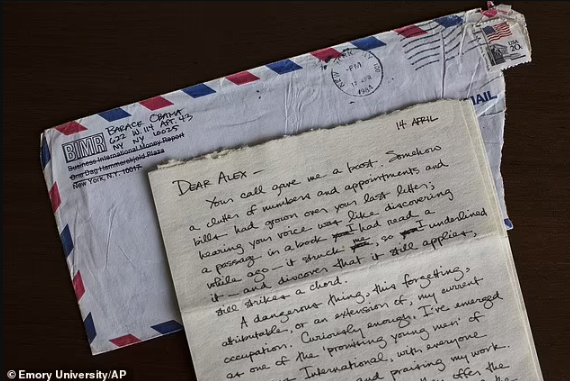 BARACK OBAMA
622 W. 114 APT. 43
NY NY 10025
BIMR
Business International Money Report
One Dag Hammarskjold Plaza
New York, N.Y. 10017
NEW YORK, NY
PM
17 APR
USA
20c
MAIL
14 APRIL
DEAR ALEX —
Your call gave me a boost. Somehow
a clutter of numbers and appointments and
bills had grown over your last letters;
hearing your voice was like discovering
a passage in a book I had read a
while ago — it struck me, so I underlined
it — and discover that it still applies,
still strikes a chord.
A dangerous thing, this forgetting,
attributable, or an extension of, my current
occupation. Curiously enough, I've emerged
as one of the "promising young men" of
International, with everyone
and praising my work.
offer the
© Emory University/AP